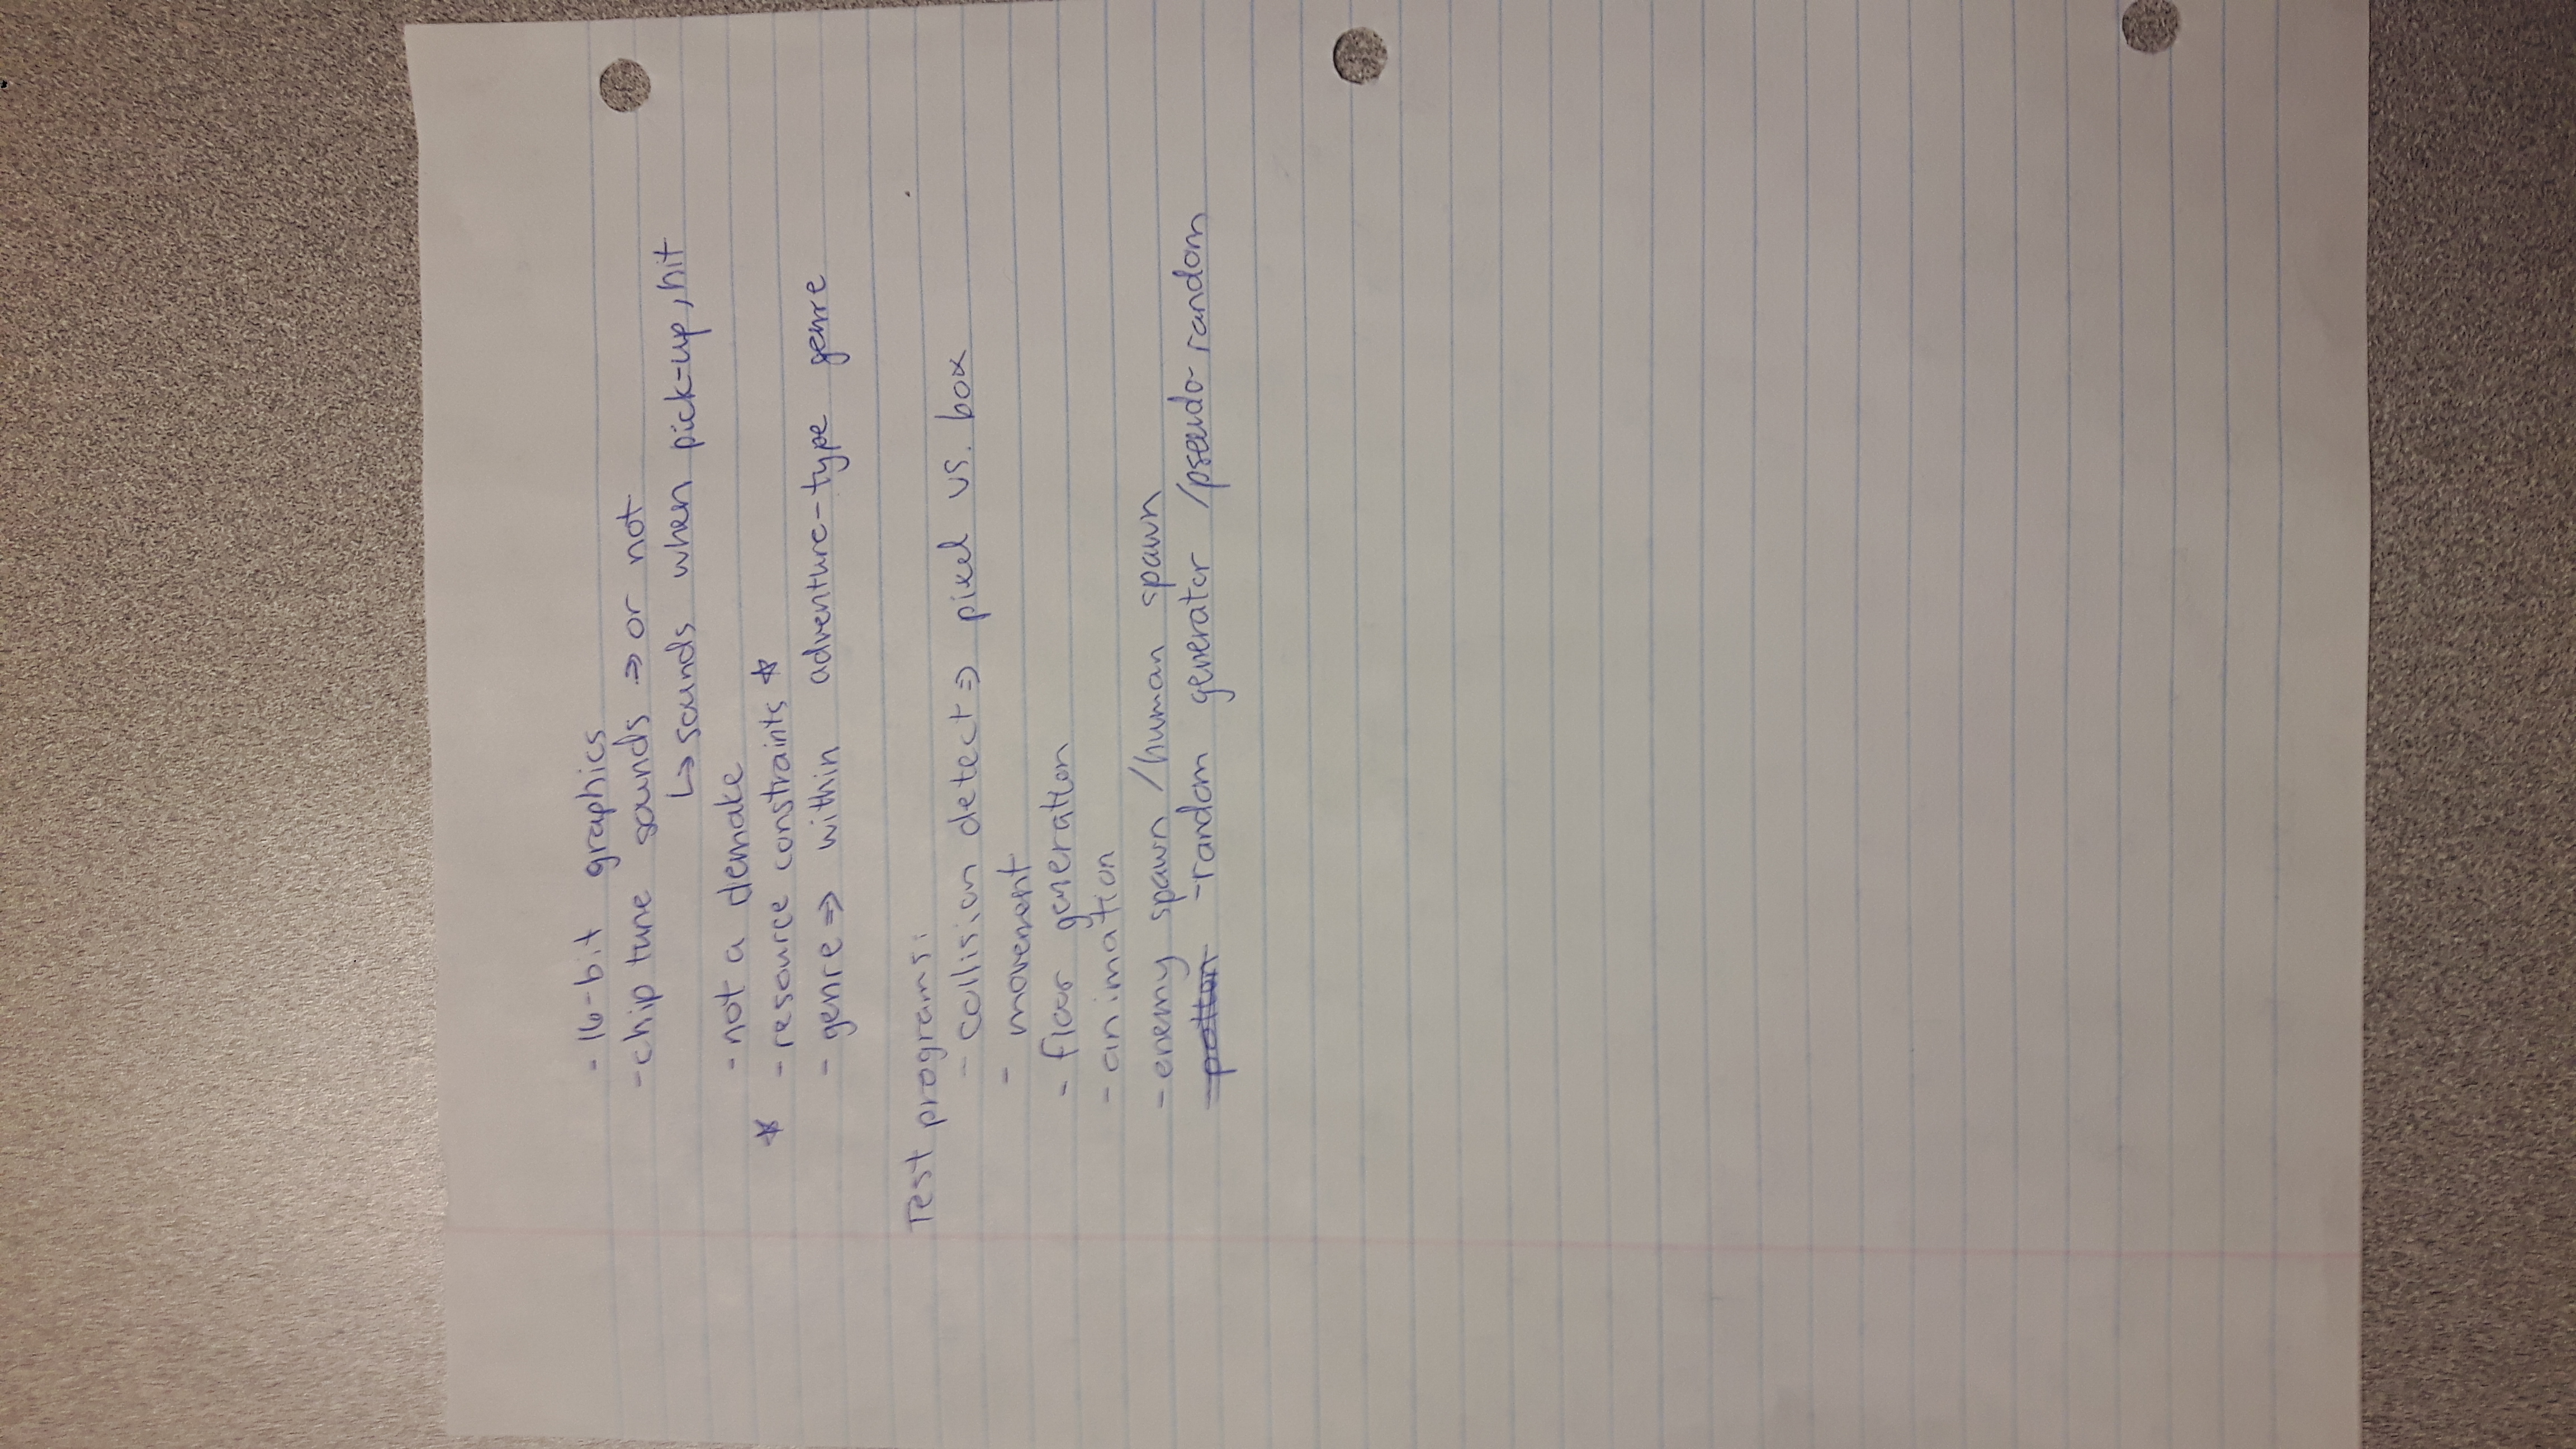 - 16-bit graphics
- chip tune sounds ⇒ or not
↳ sounds when pick-up, hit
- not a demake
* - resource constraints *
- genre ⇒ within adventure-type genre
Test programs:
- collision detect ⇒ pixel vs. box
- movement
- floor generation
- animation
- enemy spawn / human spawn
- random generator / pseudo-random